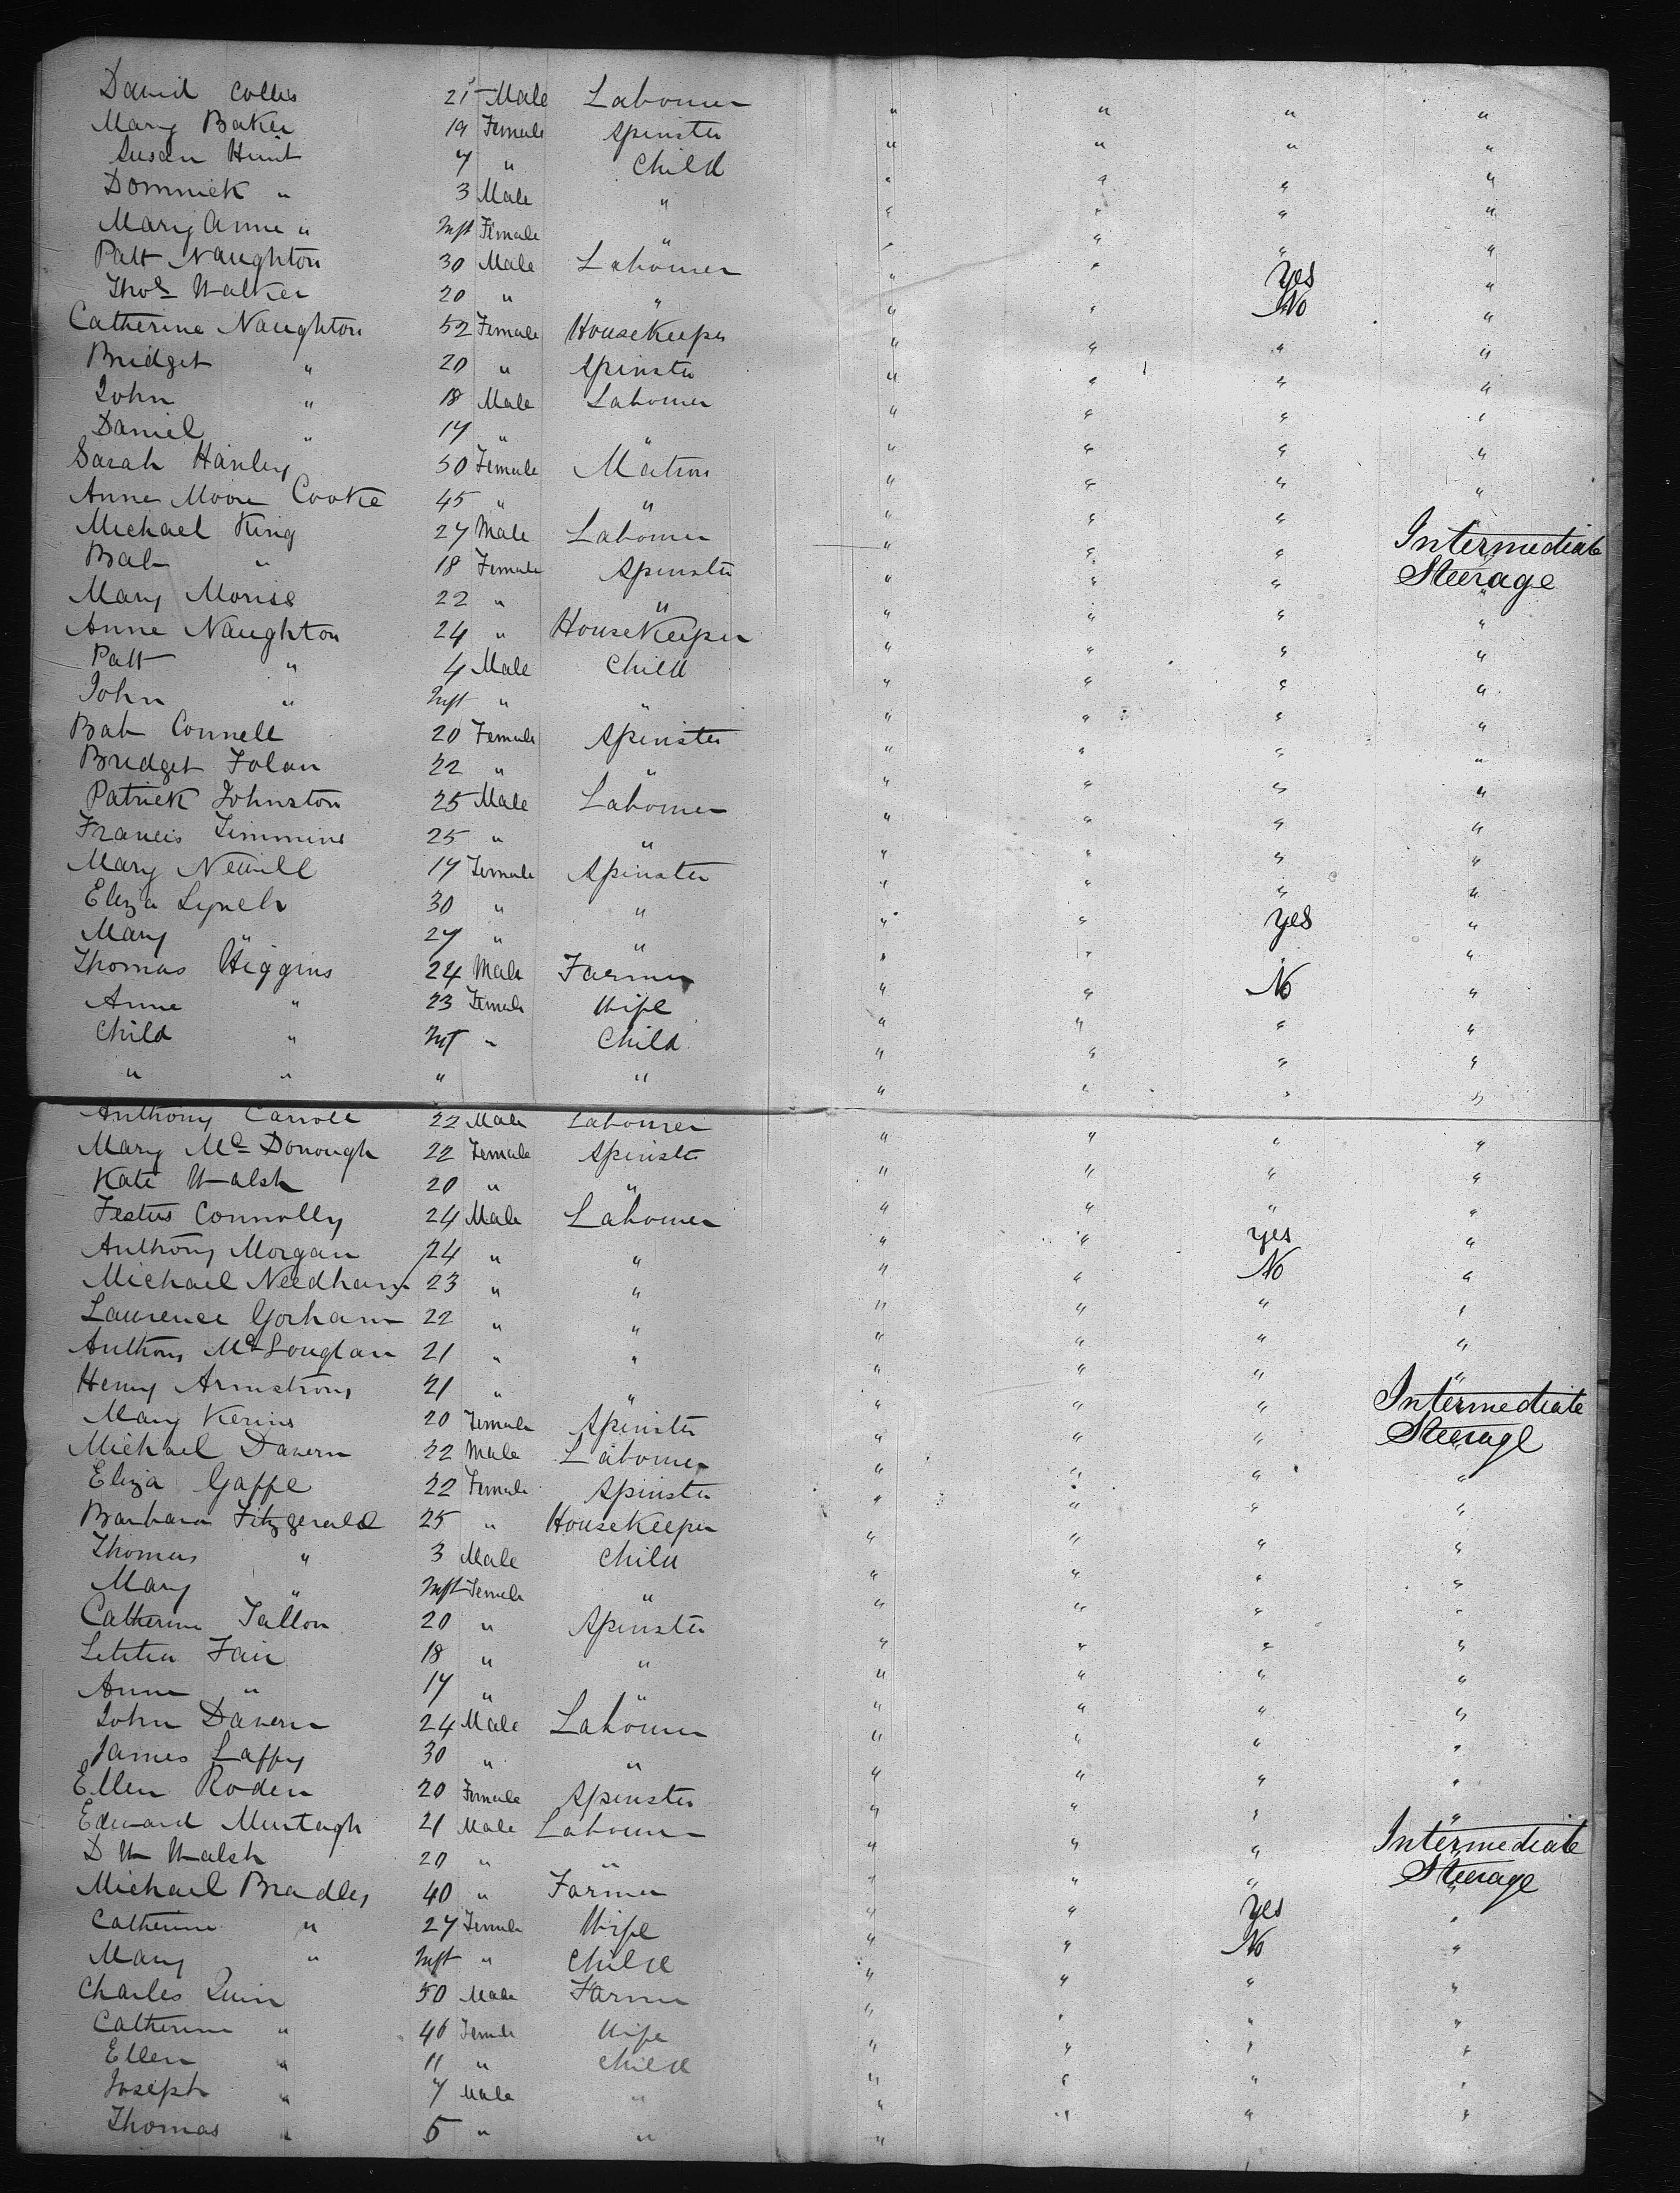 David Colles 21 Male Labourer " " " "
Mary Baker 19 Female Spinster " " " "
Susan Hunt 7 " Child " " " "
Dominick " 3 Male " " " " "
Mary Anne " Inft Female " " " " "
Patt Naughton 30 Male Labourer " " Yes "
Thos Walker 20 " " " " No "
Catherine Naughton 52 Female HouseKeeper " " " "
Bridget " 20 " Spinster " " " "
John " 18 Male Labourer " " " "
Daniel " 14 " " " " " "
Sarah Hanley 50 Female Matron " " " "
Anne Moore Cooke 45 " " " " " "
Michael King 27 Male Labourer " " " Intermediate
Bab " 18 Female Spinster " " " Steerage
Mary Morise 22 " " " " " "
Anne Naughton 24 " HouseKeeper " " " "
Patt " 4 Male Child " " " "
John " Inft " " " " " "
Bab Connell 20 Female Spinster " " " "
Bridget Folan 22 " " " " " "
Patrick Johnston 25 Male Labourer " " " "
Francis Timmins 25 " " " " " "
Mary Newill 17 Female Spinster " " " "
Eliza Lynch 30 " " " " Yes "
Mary " 27 " " " " "
Thomas Higgins 24 Male Farmer " " No "
Anne " 23 Female Wife " " " "
Child " Inft " Child " " " "
" " " " " " " "
Anthony Carroll 22 Male Labourer " " " "
Mary Mc Donough 22 Female Spinster " " " "
Kate Walsh 20 " " " " " "
Festus Connolly 24 Male Labourer " " Yes "
Anthony Morgan 24 " " " " No "
Michael Needham 23 " " " " " "
Laurence Gorham 22 " " " " " "
Anthony McLouglan 21 " " " " " "
Henry Armstrong 21 " " " " " Intermediate
Mary Kerins 20 Female Spinster " " " Steerage
Michael Davern 22 Male Labourer " " " "
Eliza Gaffe 22 Female Spinster " " " "
Barbara Fitzgerald 25 " HouseKeeper " " " "
Thomas " 3 Male Child " " " "
Mary " Inft Female " " " " "
Catherine Tallon 20 " Spinster " " " "
Letitia Fair 18 " " " " " "
Anne " 17 " " " " " "
John Davern 24 Male Labourer " " " "
James Laffy 30 " " " " " "
Ellen Roden 20 Female Spinster " " " "
Edward Murtagh 21 Male Labourer " " " Intermediate
D W Walsh 20 " " " " " Steerage
Michael Bradley 40 " Farmer " " Yes "
Catherine " 27 Female Wife " " No "
Mary " Inft " Child " " " "
Charles Quin 50 Male Farmer " " " "
Catherine " 46 Female Wife " " " "
Ellen " 11 " Child " " " "
Joseph " 7 Male " " " " "
Thomas " 5 " " " " " "